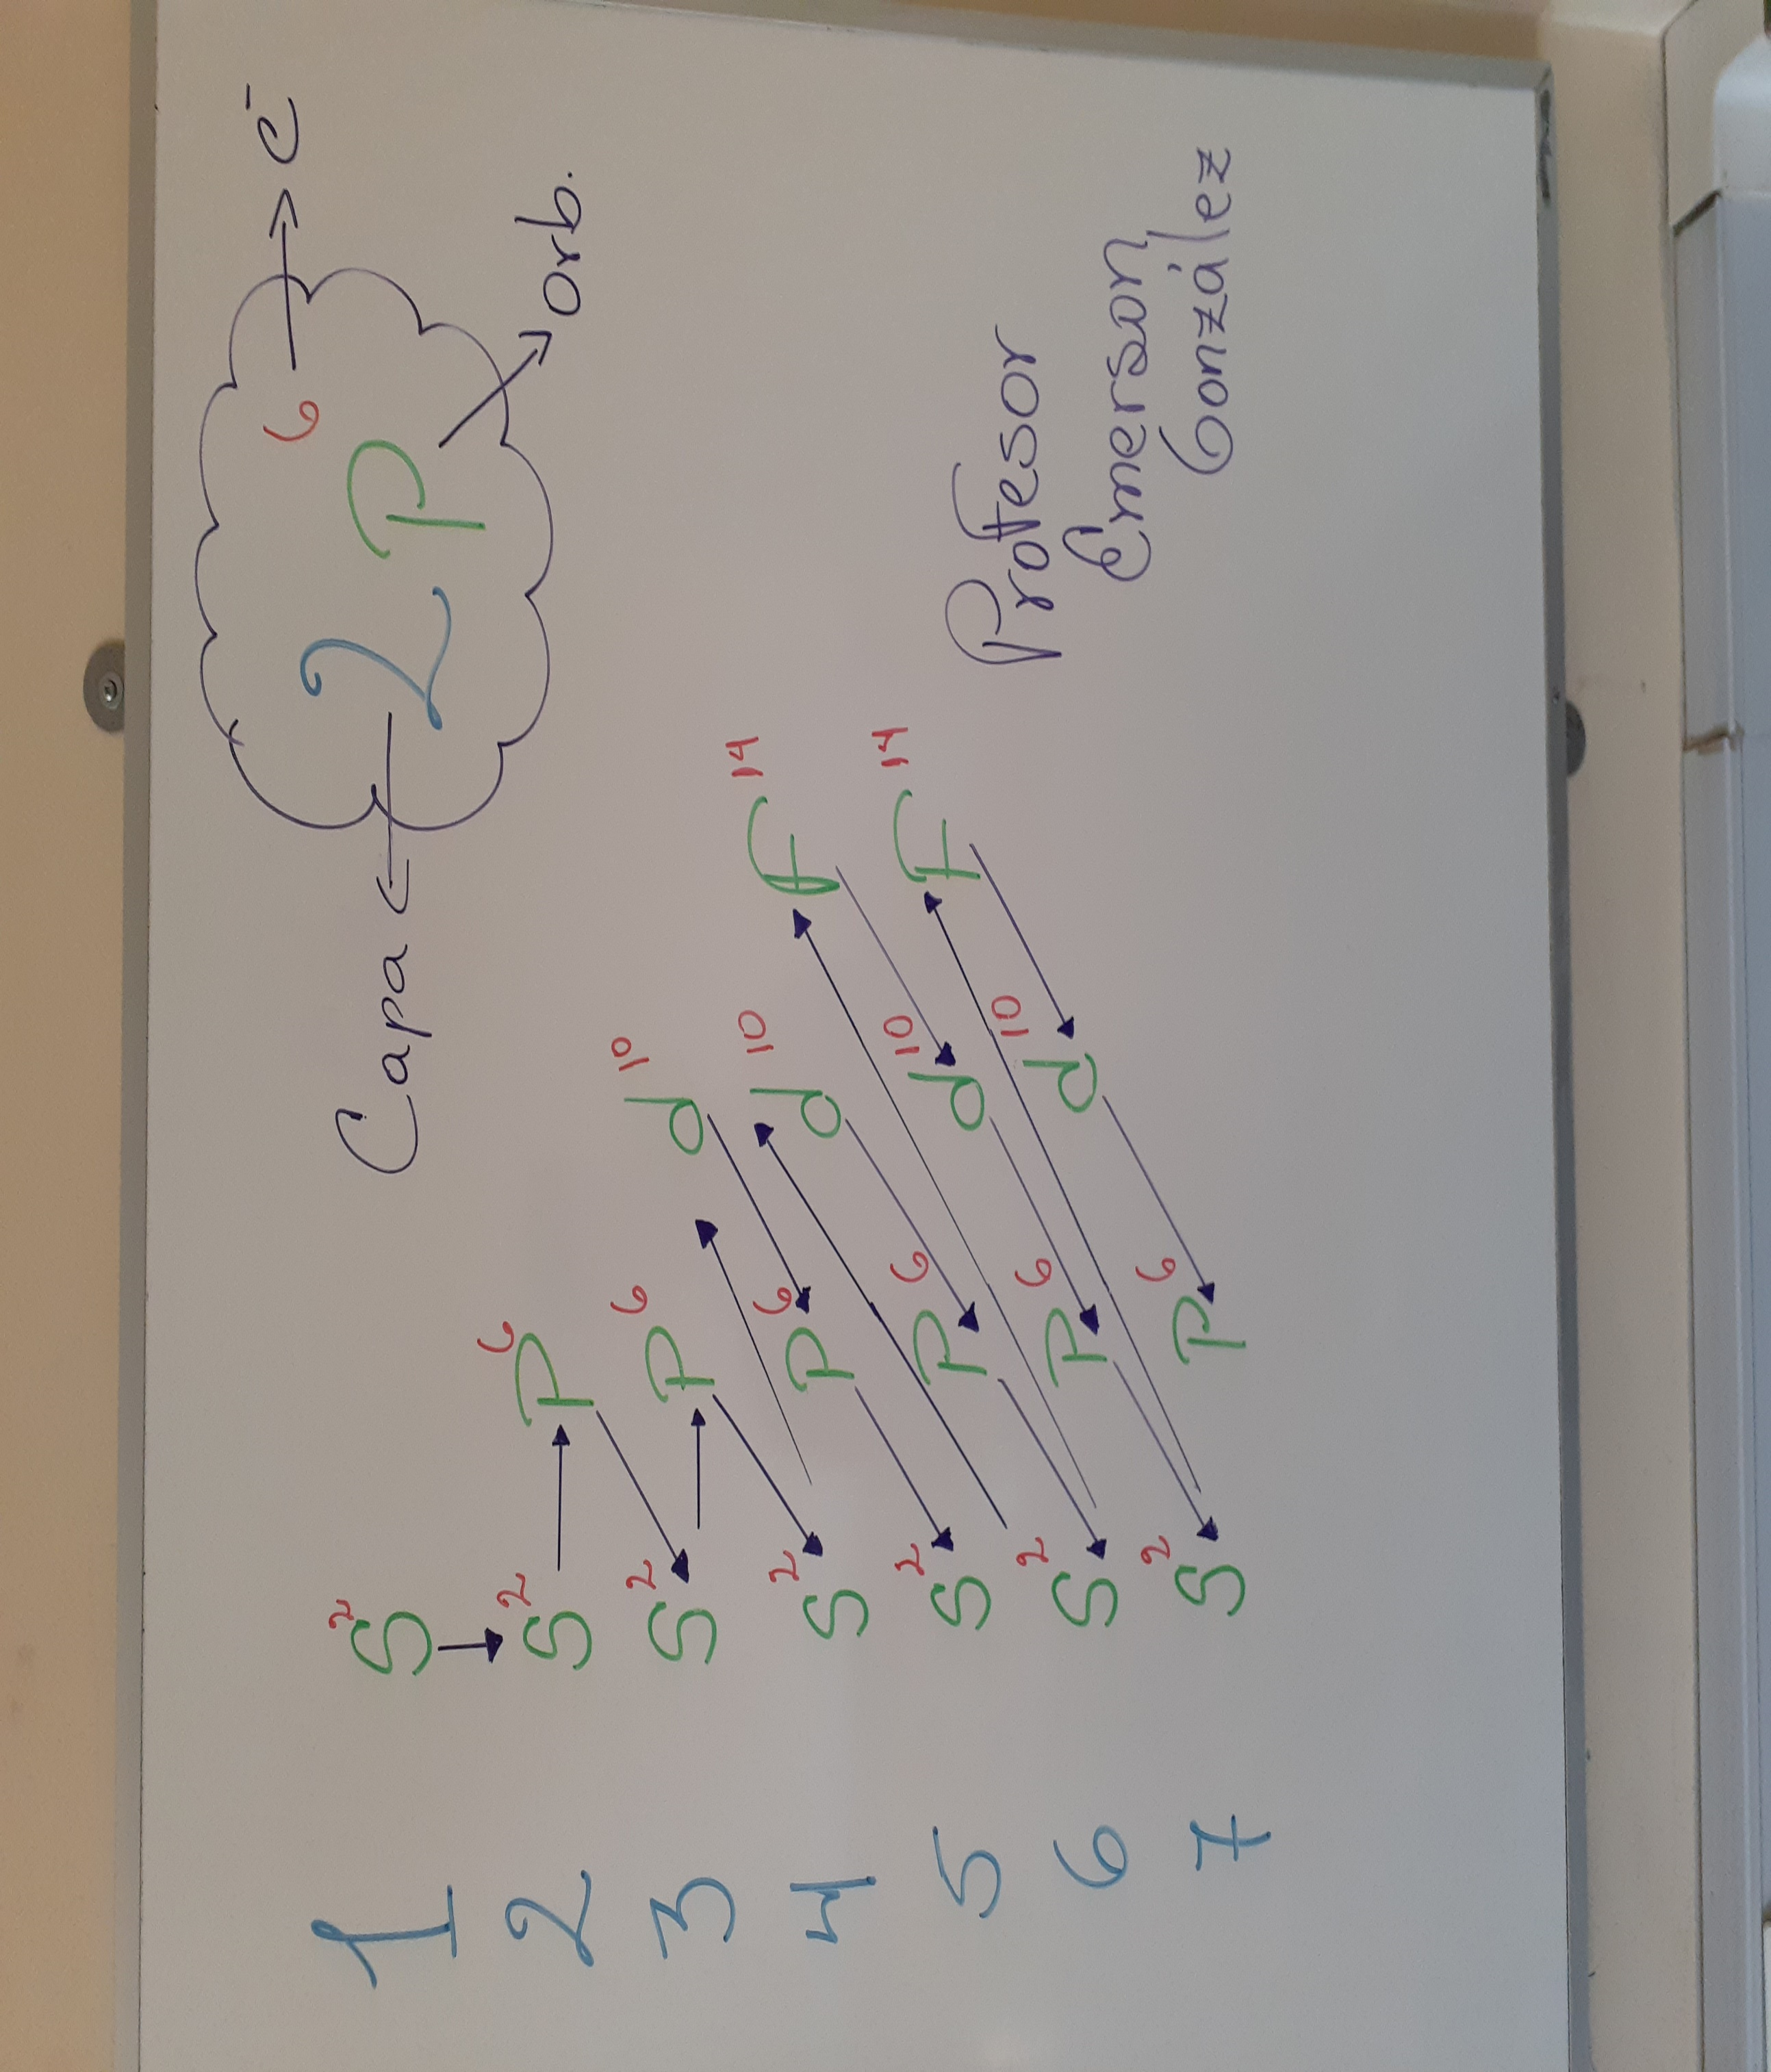 Capa ← 2 P⁶ → e⁻
↘ orb.
1 S²
2 S² → P⁶
3 S² → P⁶ d¹⁰
4 S² P⁶ d¹⁰ F¹⁴
5 S² P⁶ d¹⁰ F¹⁴
6 S² P⁶ d¹⁰
7 S² P⁶
Profesor
Emerson
González